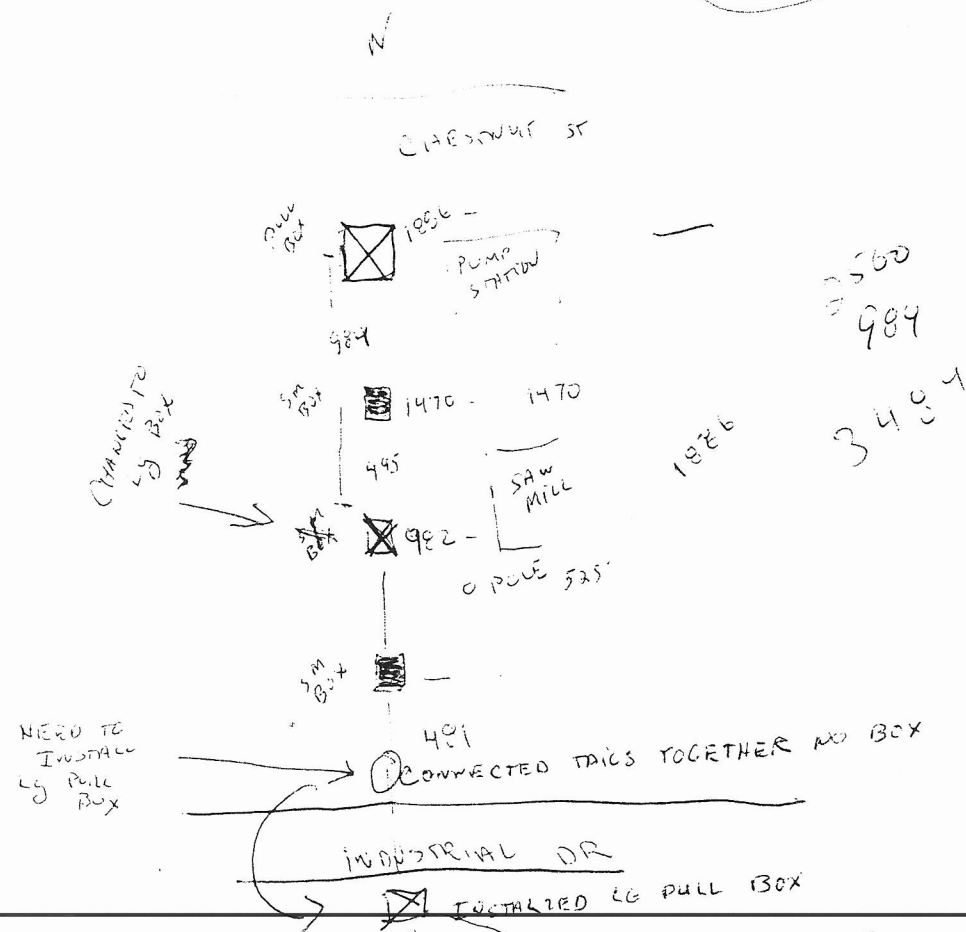 N
CHESTNUT ST
PULL
BOX
1886 -
PUMP
STATION
984
SM
BOX
1470 - 1470
CHANGED TO
Lg BOX
495
SAW
MILL
SM
BOX
982 -
O POLE 525'
SM
BOX
481
NEED TO
INSTALL
Lg PULL
BOX
CONNECTED TAILS TOGETHER NO BOX
INDUSTRIAL DR
INSTALLED LG PULL BOX
984